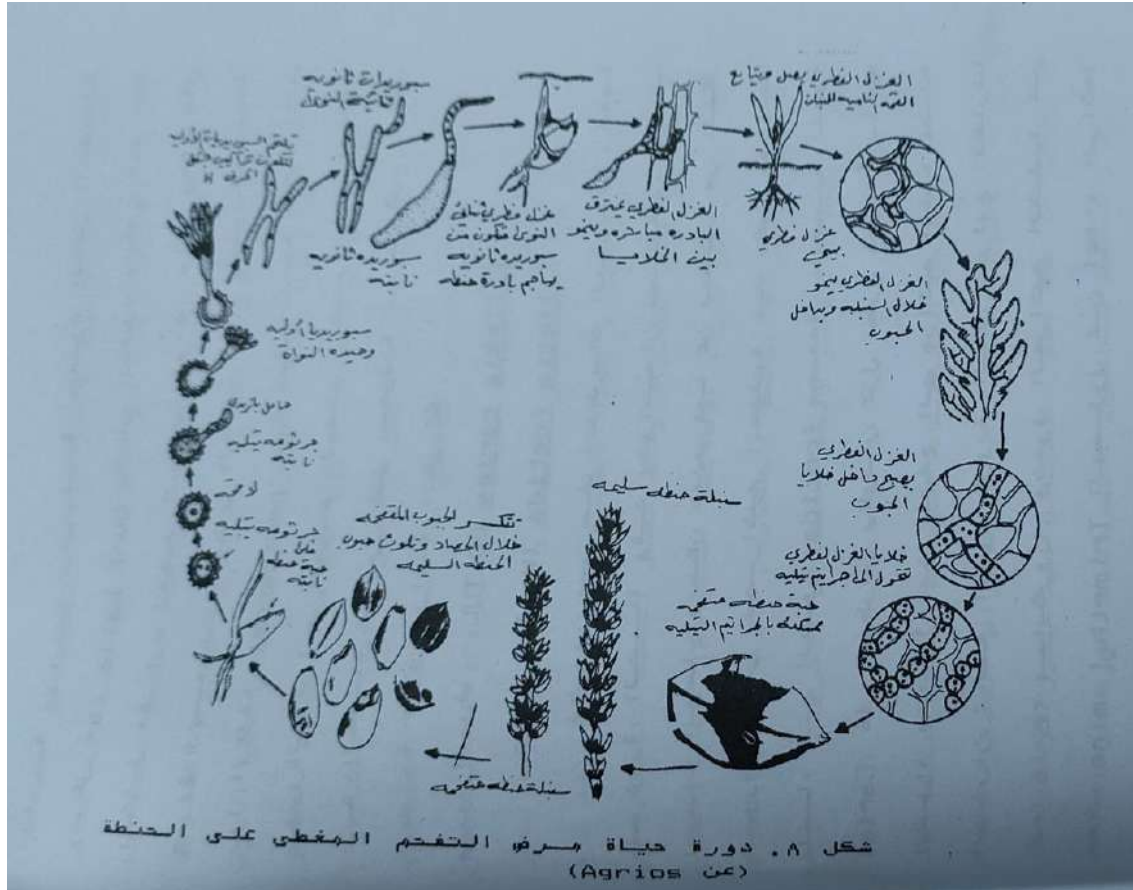 سبوريدات ثانويه
ثنائية النوى
الغزل الفطري يصل ويتابع
القمه الناميه للنبات
سبوريده ثانويه
نابته
غزل فطري ثنائي
النوى متكون من
سبوريده ثانويه
يهاجم بادرة حنطه
الغزل الفطري يخترق
البادره مباشره وينمو
بين الخلايا
غزل فطري
بيني
الغزل الفطري ينمو
خلال السنبله ويداخل
الحبوب
سبوريديا أوليه
وحيده النواة
حامل بازيدي
جرثومه تيليه
نابته
لاقحه
جرثومه تيليه
حبة حنطه
نابته
تتكسر الحبوب المتفحمه
خلال الحصاد وتلوث حبوب
الحنطه السليمه
سنبلة حنطه سليمه
الغزل الفطري
يصبح داخل خلايا
الحبوب
خلايا الغزل الفطري
تتحول الى جراثيم تيليه
حبة حنطه متفحمه
ممتلئه بالجراثيم التيليه
سنبلة حنطه متفحمه
شكل ٨. دورة حياة مرض التفحم المغطى على الحنطة
(عن Agrios)